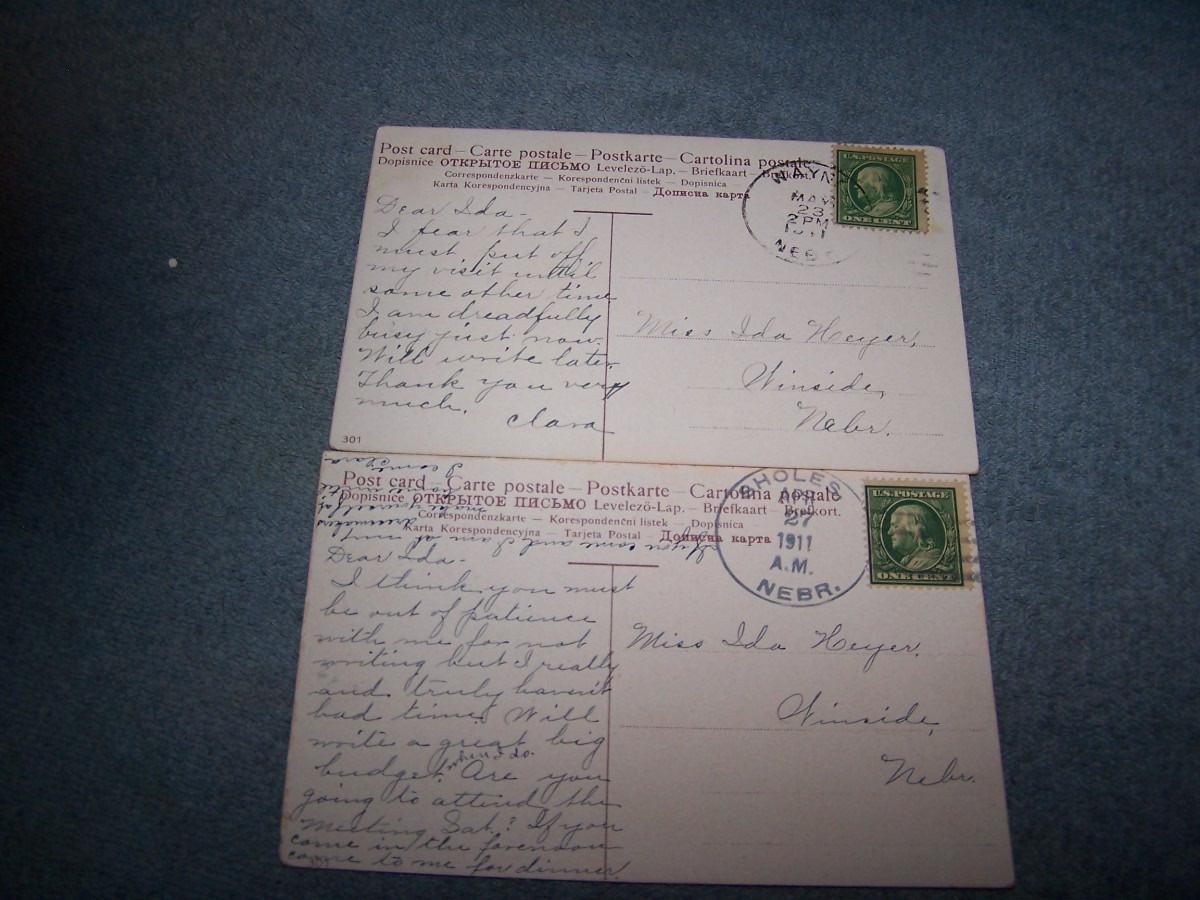 Post card – Carte postale – Postkarte – Cartolina postale
Dopisnice ОТКРЫТОЕ ПИСЬМО Levelező-Lap. – Briefkaart – Brefkort.
Correspondenzkarte – Korespondenční listek – Dopisnica
Karta Korespondencyjna – Tarjeta Postal – Дописна карта
U.S. POSTAGE
ONE CENT
WAYNE
MAY
23
2 PM
1911
NEBR
Dear Ida -
I fear that I
must put off
my visit until
some other time
I am dreadfully
busy just now.
Will write later.
Thank you very
much.
Clara
301
Miss Ida Heyer,
Winside,
Nebr.
Post card – Carte postale – Postkarte – Cartolina postale
Dopisnice ОТКРЫТОЕ ПИСЬМО Levelező-Lap. – Briefkaart – Brefkort.
Correspondenzkarte – Korespondenční listek – Dopisnica
Karta Korespondencyjna – Tarjeta Postal – Дописна карта
U.S. POSTAGE
ONE CENT
SHOLES
APR
27
1911
A.M.
NEBR.
Dear Ida -
I think you must
be out of patience
with me for not
writing but I really
and truly haven't
had time. Will
write a great big
budget when I do. Are you
going to attend the
meeting Sat.? If you
come in the forenoon
come to me for dinner.
If you come and I am not
make yourself at
home until
I come
Clara
Miss Ida Heyer.
Winside,
Nebr.